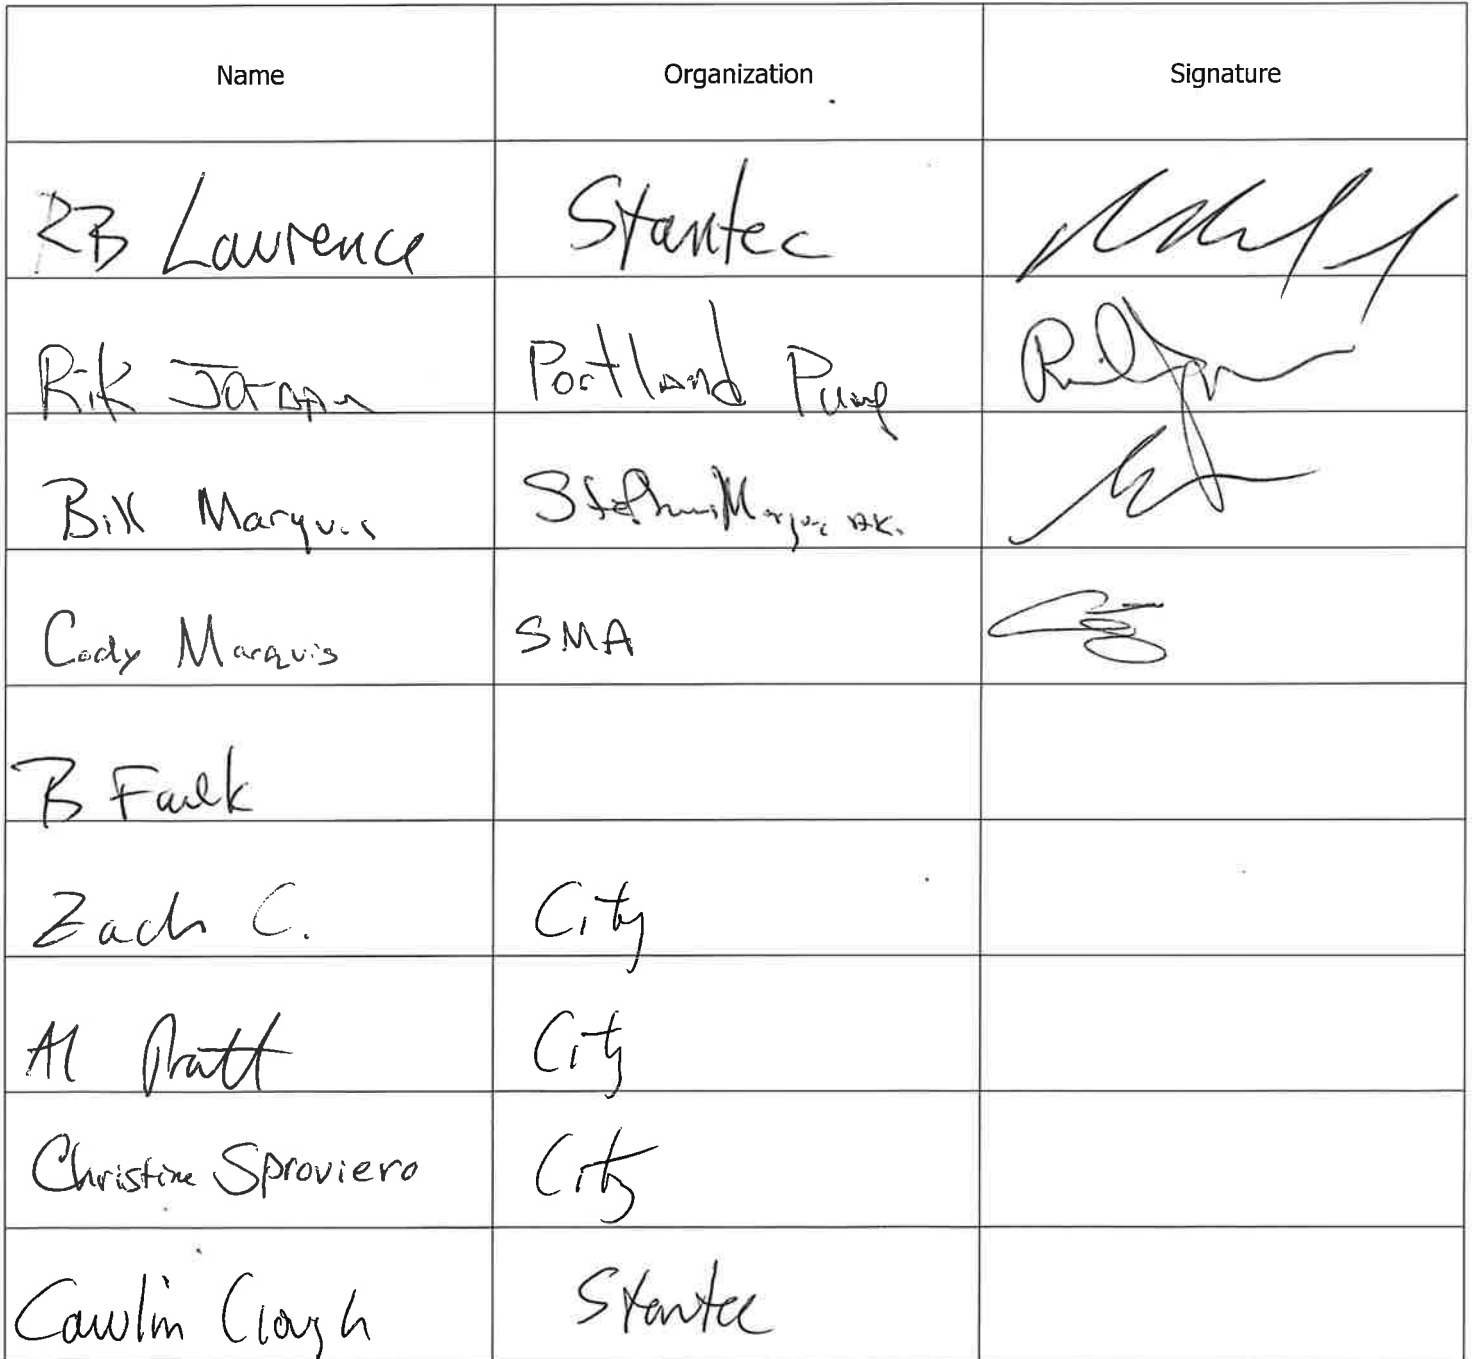 Name Organization Signature
RB Lawrence Stantec
Rik Jordan Portland Pump
Bill Marquis Stephen Marquis
Cody Marquis SMA
B Faulk
Zach C. City
Al Pratt City
Christine Sproviero City
Clough Stantec